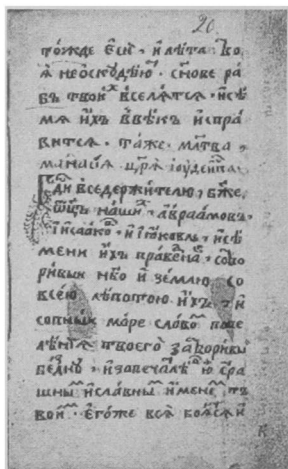 20
то́жде є҆сѝ · и҆ лѣ́та твоѧ̑
не ѡ҆скꙋдѣ́ю · сн҃ове ра
бъ твои́х вселѧ́тсѧ · и҆ сѣ́
мѧ и҆́хъ в вѣ́къ и҆спра
витсѧ · та́же · мл҃тва
манасі́ѧ цр҃ѧ і҆ꙋде́иска
Гд҃и вседержи́телю, бж҃е,
ѻ҆тц҃ъ на́шиⷯ, а҆враа́мовъ,
и҆ і҆саа́ко, и҆ і҆а́ковль, и҆ сѣ́
мени и҆́хъ пра́веⷣна, сотво
ри́выи нб҃о и҆ зе́млю со
все́ю лѣ́потою и҆́хъ, и҆
мо́ре сло́воⷨ пове
лѣ́нїѧ твоего̀ затвори́выи
бе́зднꙋ, и҆ запеча́лѣ ю҆ стра
шныⷨ и҆ сла́вныⷨ и҆́менеⷨ тв
вои́ⷨ, є҆го́же всѧ̀ боѧ́тсѧ и҆